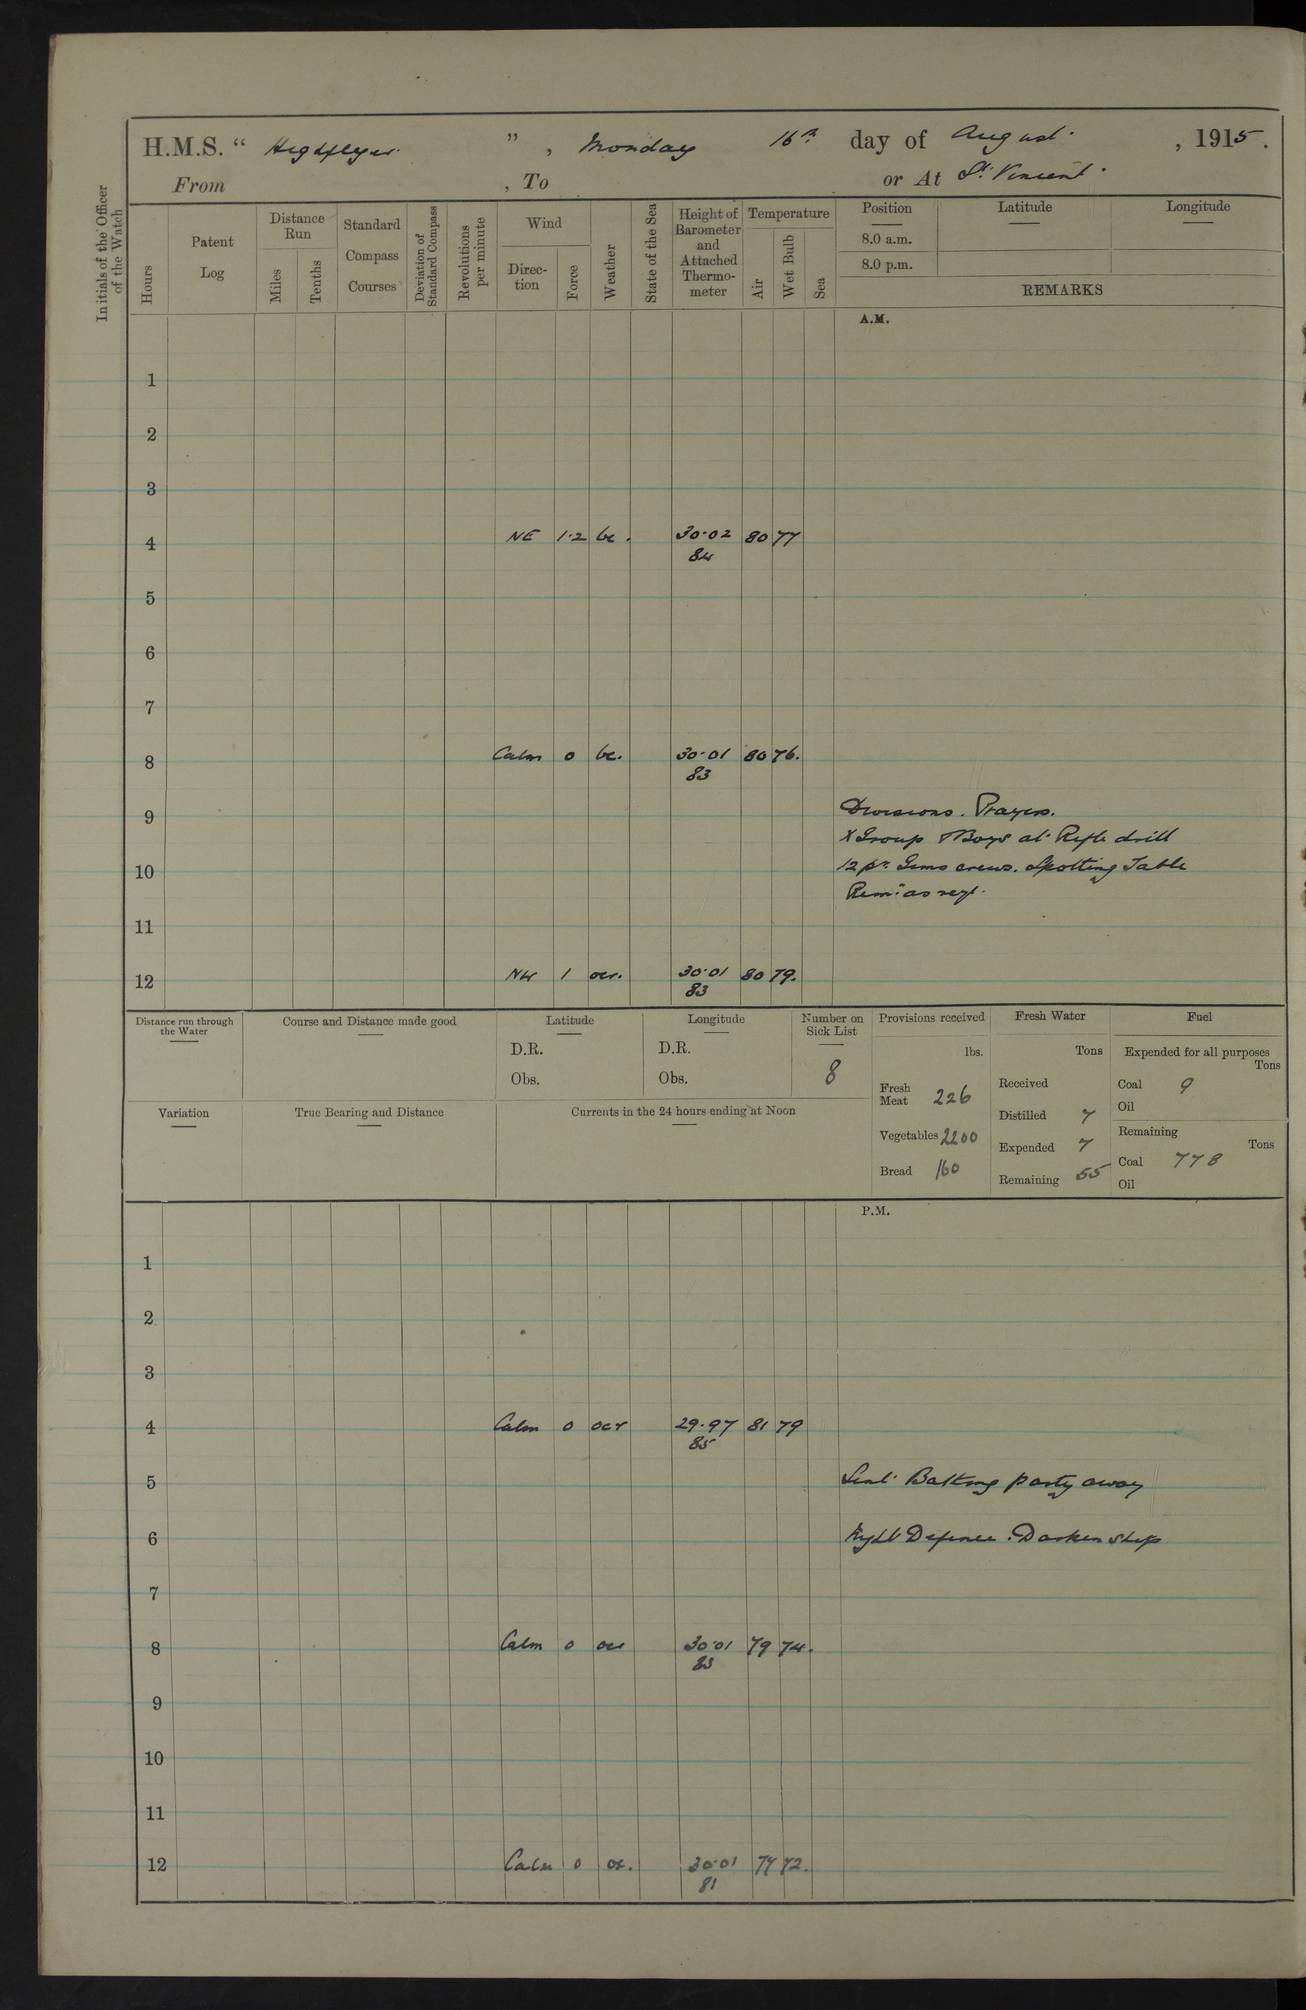 H.M.S. “ Highflyer ” , Monday 16th day of August , 1915.
From , To or At St. Vincent
Initials of the Officer of the Watch
Hours
Patent Log
Distance Run
Miles
Tenths
Standard Compass Courses
Deviation of Standard Compass
Revolutions per minute
Wind
Direction
Force
Weather
State of the Sea
Height of Barometer and Attached Thermometer
Temperature
Air
Wet Bulb
Sea
Position Latitude Longitude
8.0 a.m.
8.0 p.m.
REMARKS
A.M.
1
2
3
4 NE 1·2 bc. 30·02 80 77
84
5
6
7
8 Calm 0 bc. 30·01 80 76.
83
9 Divisions. Prayers.
X Group & Boys at Rifle drill
10 12 pr. Guns crews. Spotting Table
Remr. as reqt.
11
12 NW 1 ocr. 30·01 80 79.
83
Distance run through the Water
Course and Distance made good
Latitude
D.R.
Obs.
Longitude
D.R.
Obs.
Number on Sick List
8
Provisions received
lbs.
Fresh Meat 226
Vegetables 2200
Bread 160
Fresh Water
Tons
Received
Distilled 7
Expended 7
Remaining 55
Fuel
Expended for all purposes
Tons
Coal 9
Oil
Remaining
Tons
Coal 778
Oil
Variation
True Bearing and Distance
Currents in the 24 hours ending at Noon
P.M.
1
2
3
4 Calm 0 ocr 29·97 81 79
85
5 Sent Bathing party away
6 Night Defence. Darken ship
7
8 Calm 0 oc 30·01 79 74.
83
9
10
11
12 Calm 0 oc. 30·01 77 72.
81